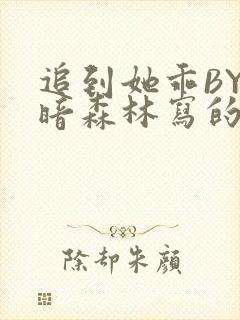 追到她乖BY
暗森林寫的
除却朱顔